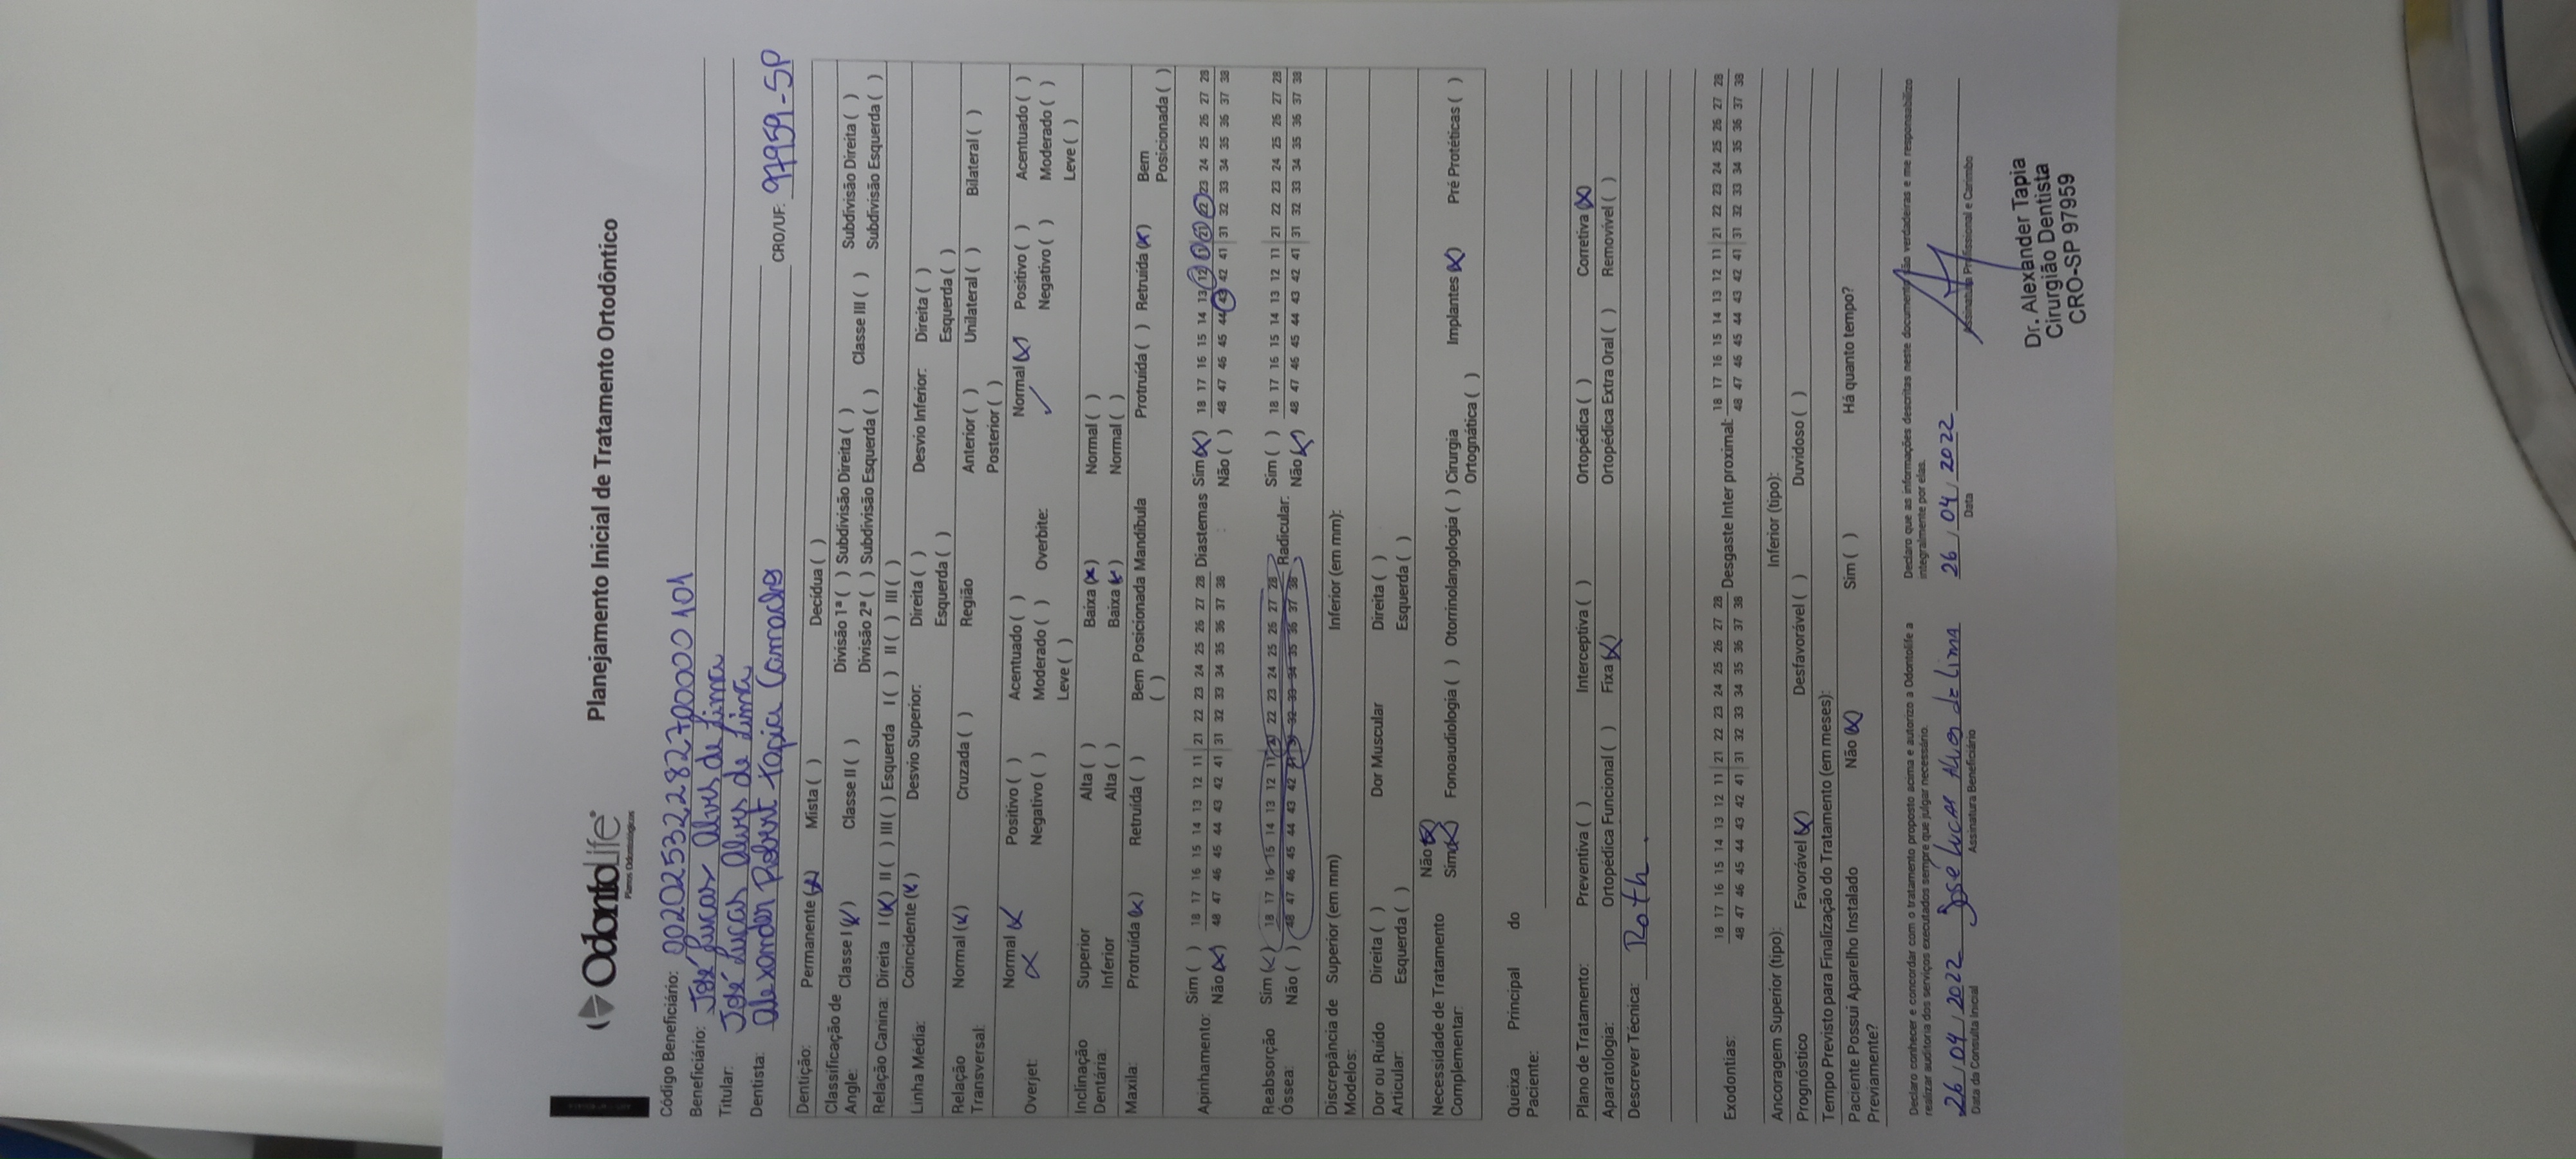 OdontoLife®
Planos Odontológicos
Planejamento Inicial de Tratamento Ortodôntico
Código Beneficiário: 0020253228270000101
Beneficiário: José Lucas Alves de Lima
Titular: José Lucas Alves de Lima
Dentista: Alexander Robert Tapia Camacho CRO/UF: 97959-SP
Dentição: Permanente (x) Mista ( ) Decídua ( )
Classificação de Angle: Classe I (x) Classe II ( ) Divisão 1ª ( ) Subdivisão Direita ( ) Classe III ( ) Subdivisão Direita ( )
Divisão 2ª ( ) Subdivisão Esquerda ( ) Subdivisão Esquerda ( )
Relação Canina: Direita I (x) II ( ) III ( ) Esquerda I ( ) II ( ) III ( )
Linha Média: Coincidente (x) Desvio Superior: Direita ( ) Desvio Inferior: Direita ( )
Esquerda ( ) Esquerda ( )
Relação Transversal: Normal (x) Cruzada ( ) Região Anterior ( ) Unilateral ( ) Bilateral ( )
Posterior ( )
Overjet: Normal (x) Positivo ( ) Acentuado ( ) Overbite: Normal (x) Positivo ( ) Acentuado ( )
Negativo ( ) Moderado ( ) Negativo ( ) Moderado ( )
Leve ( ) Leve ( )
Inclinação Dentária: Superior Alta ( ) Baixa (x) Normal ( )
Inferior Alta ( ) Baixa (x) Normal ( )
Maxila: Protruída (x) Retruída ( ) Bem Posicionada ( ) Mandíbula Protruída ( ) Retruída (x) Bem Posicionada ( )
Apinhamento: Sim ( ) 18 17 16 15 14 13 12 11 21 22 23 24 25 26 27 28 Diastemas Sim (x) 18 17 16 15 14 13 12 11 21 22 23 24 25 26 27 28
Não (x) 48 47 46 45 44 43 42 41 31 32 33 34 35 36 37 38 : Não ( ) 48 47 46 45 44 43 42 41 31 32 33 34 35 36 37 38
Reabsorção Óssea: Sim (x) 18 17 16 15 14 13 12 11 21 22 23 24 25 26 27 28 Radicular: Sim ( ) 18 17 16 15 14 13 12 11 21 22 23 24 25 26 27 28
Não ( ) 48 47 46 45 44 43 42 41 31 32 33 34 35 36 37 38 Não (x) 48 47 46 45 44 43 42 41 31 32 33 34 35 36 37 38
Discrepância de Modelos: Superior (em mm) Inferior (em mm):
Dor ou Ruído Articular: Direita ( ) Dor Muscular Direita ( )
Esquerda ( ) Esquerda ( )
Necessidade de Tratamento Complementar: Não (x)
Sim (x) Fonoaudiologia ( ) Otorrinolangologia ( ) Cirurgia Ortognática ( ) Implantes (x) Pré Protéticas ( )
Queixa Principal do Paciente:
Plano de Tratamento: Preventiva ( ) Interceptiva ( ) Ortopédica ( ) Corretiva (x)
Aparatologia: Ortopédica Funcional ( ) Fixa (x) Ortopédica Extra Oral ( ) Removível ( )
Descrever Técnica: Roth.
Exodontias: 18 17 16 15 14 13 12 11 21 22 23 24 25 26 27 28 Desgaste Inter proximal: 18 17 16 15 14 13 12 11 21 22 23 24 25 26 27 28
48 47 46 45 44 43 42 41 31 32 33 34 35 36 37 38 48 47 46 45 44 43 42 41 31 32 33 34 35 36 37 38
Ancoragem Superior (tipo): Inferior (tipo):
Prognóstico Favorável (x) Desfavorável ( ) Duvidoso ( )
Tempo Previsto para Finalização do Tratamento (em meses):
Paciente Possui Aparelho Instalado Previamente? Não (x) Sim ( ) Há quanto tempo?
Declaro conhecer e concordar com o tratamento proposto acima e autorizo a Odontolife a
realizar auditoria dos serviços executados sempre que julgar necessário.
Declaro que as informações descritas neste documento são verdadeiras e me responsabilizo
integralmente por elas.
26/04/2022 José Lucas Alves de Lima 26/04/2022
Data da Consulta Inicial Assinatura Beneficiário Data Assinatura Profissional e Carimbo
Dr. Alexander Tapia
Cirurgião Dentista
CRO-SP 97959